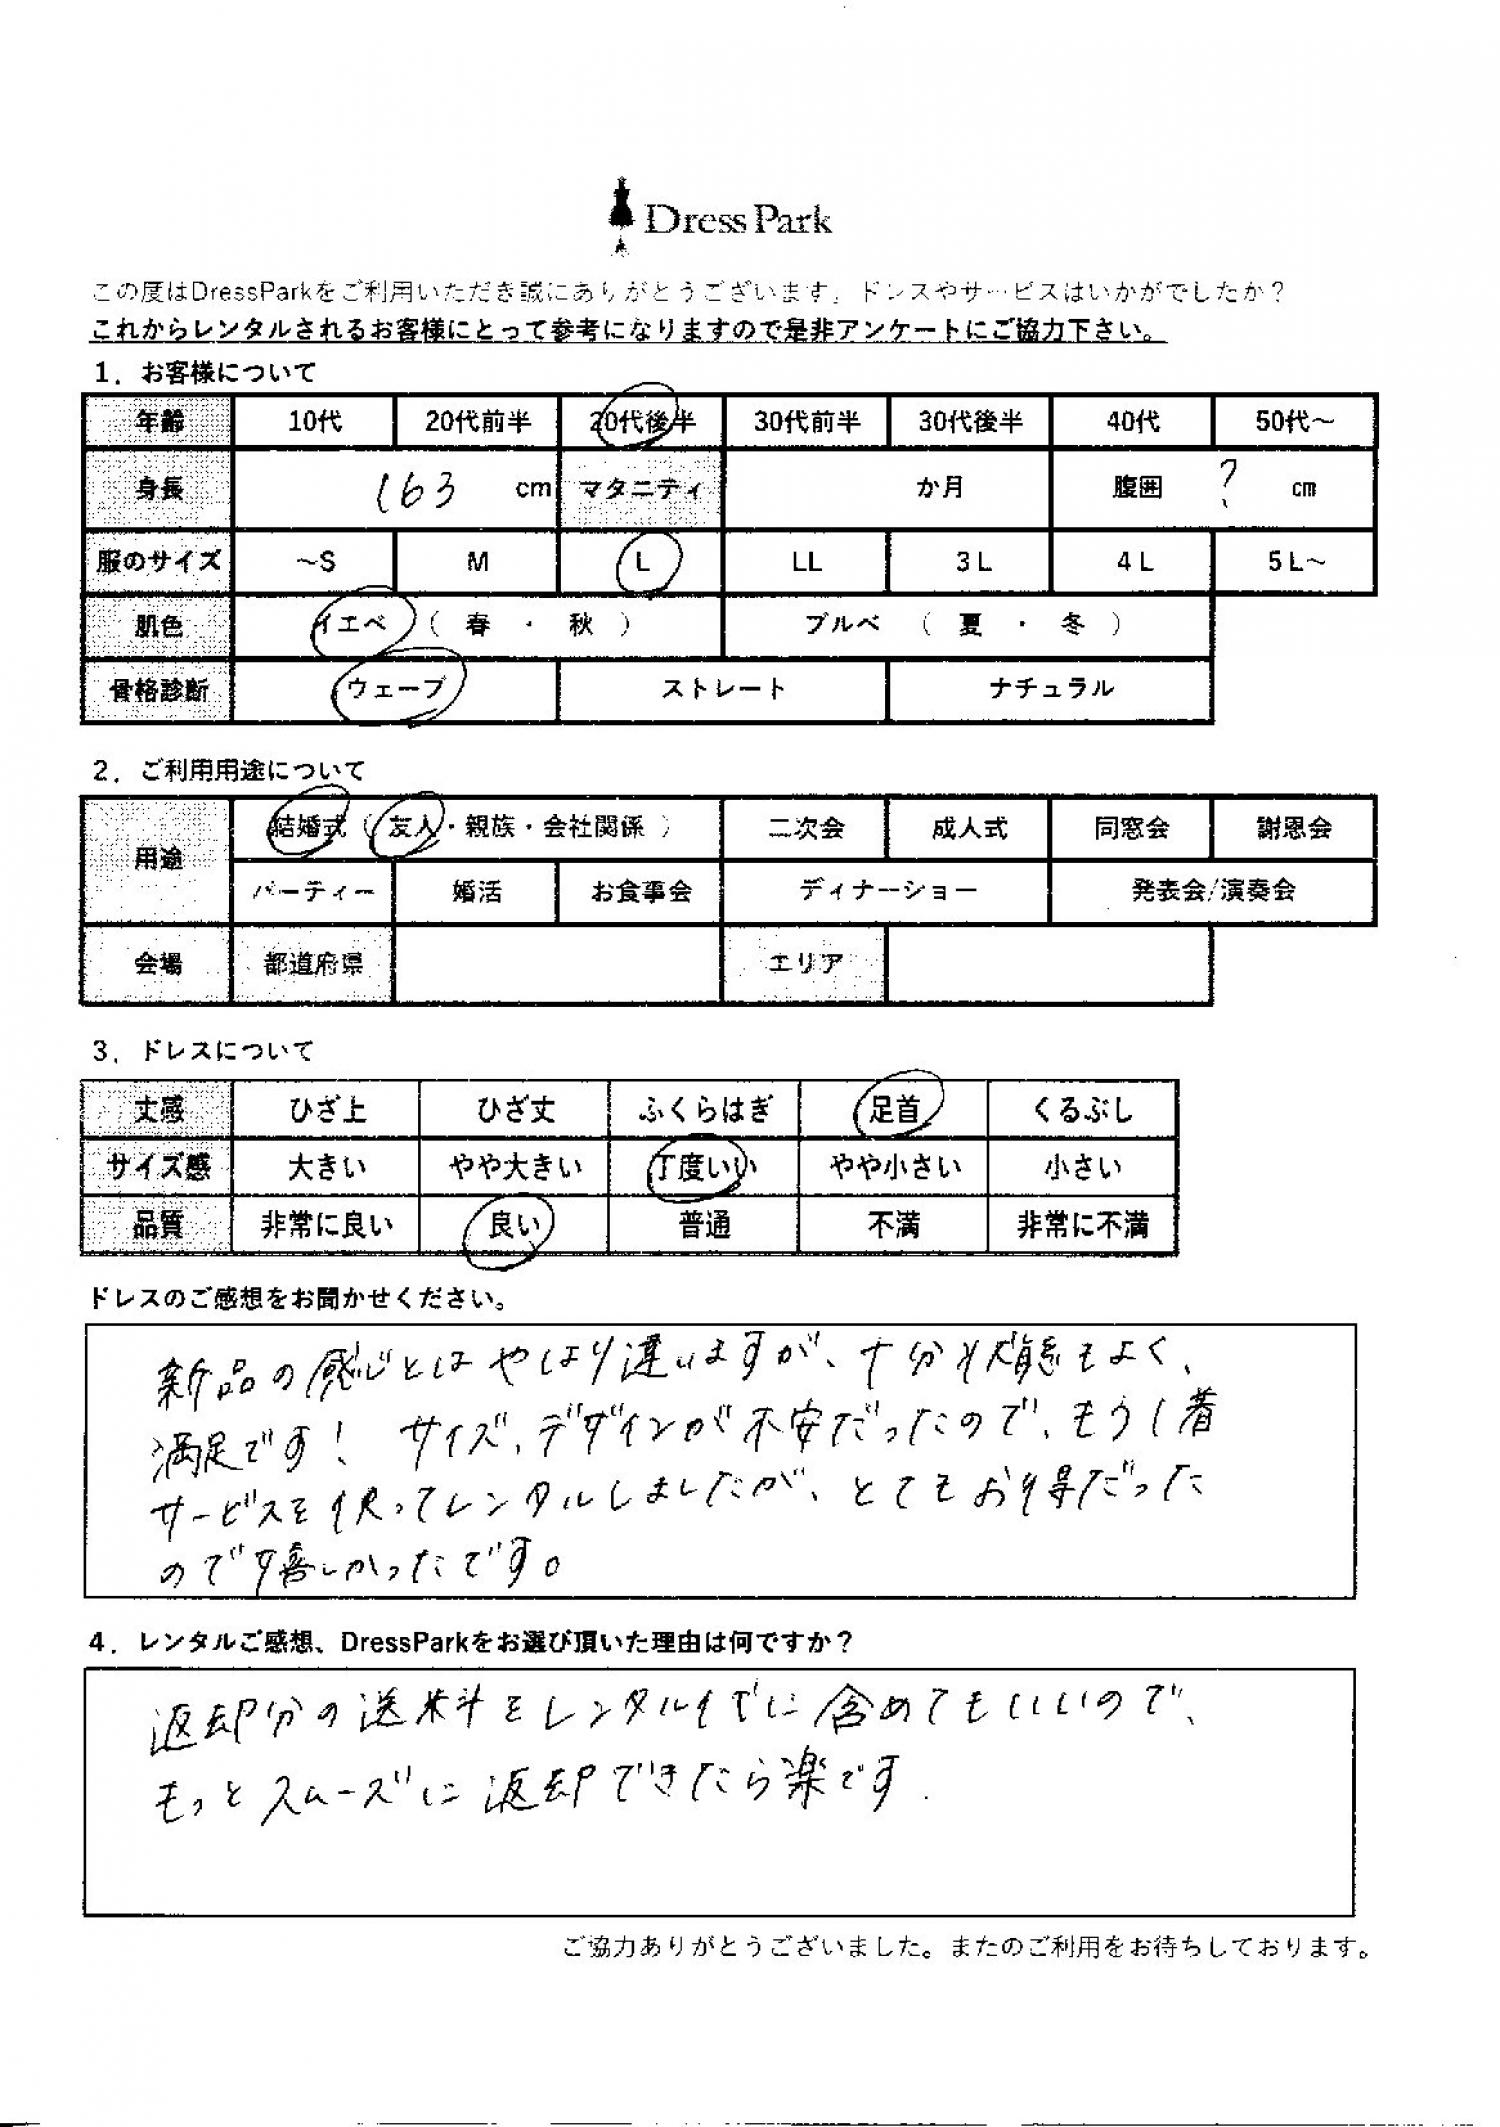 Dress Park
この度はDressParkをご利用いただき誠にありがとうございます。ドレスやサービスはいかがでしたか？
これからレンタルされるお客様にとって参考になりますので是非アンケートにご協力下さい。
1．お客様について
年齢 10代 20代前半 20代後半 30代前半 30代後半 40代 50代～
身長 163 cm マタニティ か月 腹囲 ? cm
服のサイズ ～S M L LL 3L 4L 5L～
肌色 イエベ（ 春 ・ 秋 ） ブルベ （ 夏 ・ 冬 ）
骨格診断 ウェーブ ストレート ナチュラル
2．ご利用用途について
用途 結婚式（ 友人・親族・会社関係 ） 二次会 成人式 同窓会 謝恩会
パーティー 婚活 お食事会 ディナーショー 発表会/演奏会
会場 都道府県 エリア
3．ドレスについて
丈感 ひざ上 ひざ丈 ふくらはぎ 足首 くるぶし
サイズ感 大きい やや大きい 丁度いい やや小さい 小さい
品質 非常に良い 良い 普通 不満 非常に不満
ドレスのご感想をお聞かせください。
新品の感じとはやはり違いますが、十分状態もよく、
満足です！ サイズ、デザインが不安だったので、もう1着
サービスを使ってレンタルしましたが、とてもお得だった
ので嬉しかったです。
4．レンタルご感想、DressParkをお選び頂いた理由は何ですか？
返却分の送料をレンタル代に含めてもいいので、
もっとスムーズに返却できたら楽です.
ご協力ありがとうございました。またのご利用をお待ちしております。